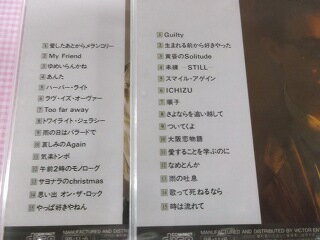 1 愛したあとからメランコリー
2 My Friend
3 ゆめいらんかね
4 あんた
5 ハーバー・ライト
6 ラヴ・イズ・オーヴァー
7 Too far away
8 トワイライト・ジェラシー
9 雨の日はバラードで
10 哀しみのAgain
11 気楽トンボ
12 午前2時のモノローグ
13 サヨナラのchristmas
14 思い出 オン・ザ・ロック
15 やっぱ好きやねん
MANUFACTURED AND DIS
1 Guilty
2 生まれる前から好きやった
3 黄昏のSolitude
4 未練 STILL
5 スマイル・アゲイン
6 ICHIZU
7 順子
8 さよならを追い越して
9 ついてくよ
10 大阪恋物語
11 愛することを学ぶのに
12 なめとんか
13 雨の吐息
14 歌って死ねるなら
15 時は流れて
MANUFACTURED AND DISTRIBUTED BY VICTOR EN